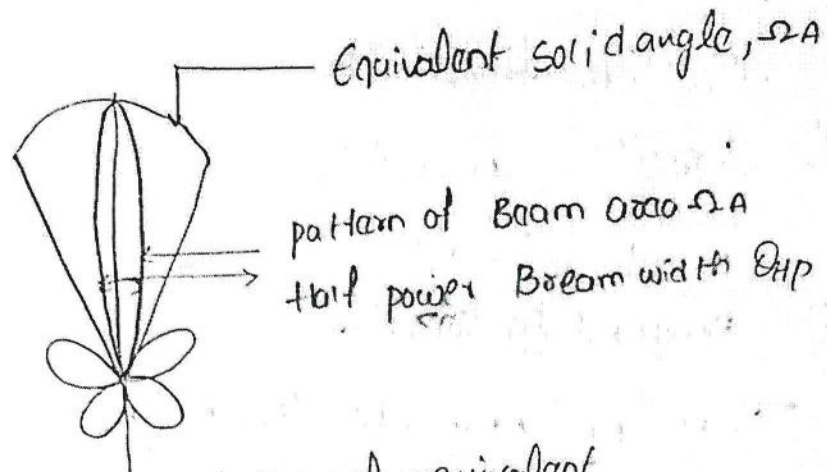 Equivalent solid angle, ΩA
pattern of Beam area ΩA
Half power Bream width θHP
equivalent